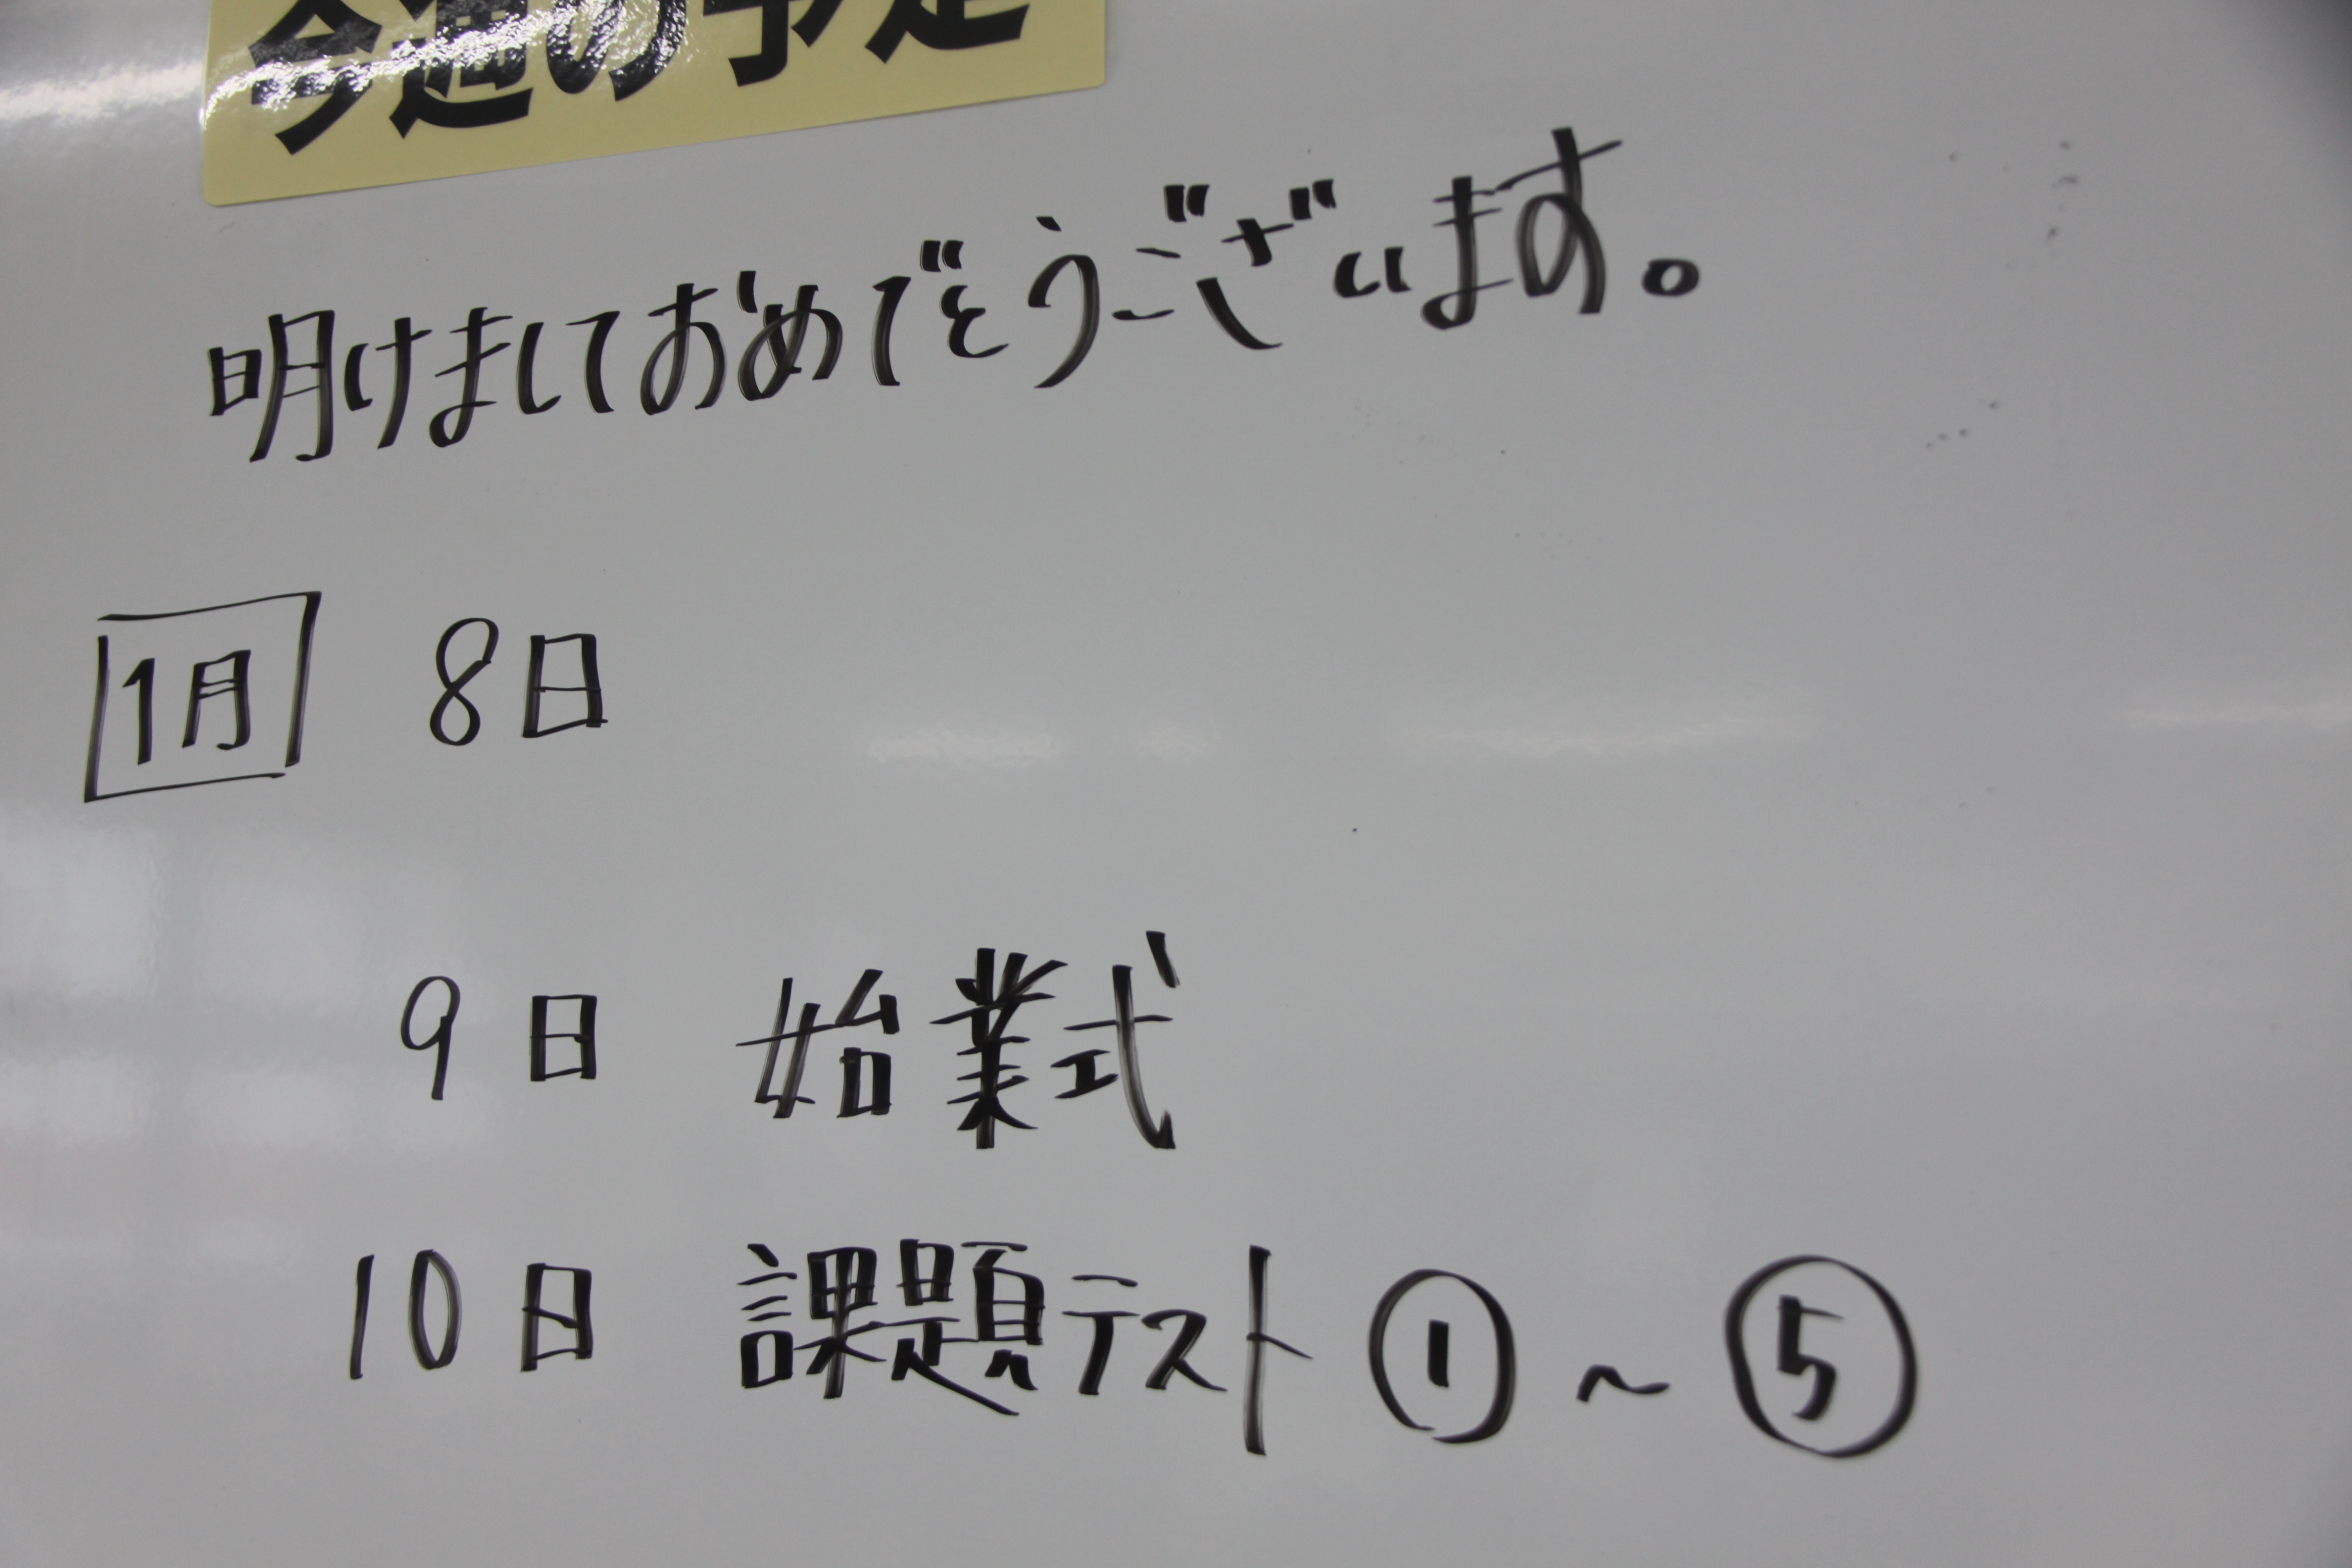 今週の予定
明けましておめでとうございます。
1月 8日
9日 始業式
10日 課題テスト ① ~ ⑤